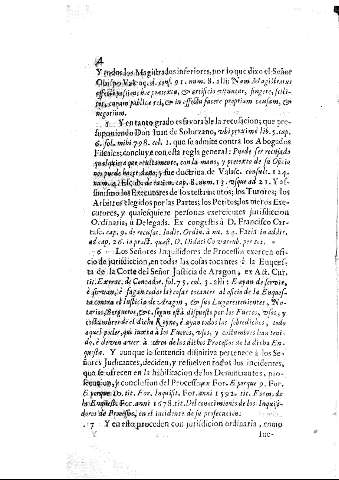 4
Y todos los Magistrados inferiores, por lo que dixo el Señor
cons. 91. num. 8. ibi: Nam Magistratus
officij prætextu, & artificio
causam publica rei, & in effectu facere propriam causam, &
negotium.
5 Y en tanto grado es favorable la recusacion; que pre-
suponiendo Don Juan de Solorzano, ubi proximè lib. 5. cap.
6. fol. mihi 798. col. 1. que se admite contra los Abogados
Fiscales; concluye con esta regla general: Puede ser recusado
qualquiera que ocultamente, con la mano, y pretexto de su Oficio
nos puede hazer daño; y fue doctrina de Valasc. consult. 124.
num. 4. cap. 8. num. 13. usque ad 21. Y
los Executores de los testamentos; los Tutores; los
Arbitros elegidos por las Partes; los Peritos, los meros Exe-
cutores, y qualesquiere personas exercientes jurisdiccion
Ordinaria, ò Delegada. Ex congestis à D. Francisco Car-
cap. 9. de recusac. Indic. Ordin. à nu. 24. Faciũ in addit.
ad cap. 26. in pract. quæst. D. Didaci Covarrub. per tot.
6 Los Señores Inquisidores de Processos exercen ofi-
cio de jurisdiccion, en todas las cosas tocantes à la Enques-
ta de la Corte del Señor Justicia de Aragon, ex Act. Cur.
tit. fol. 75. col. 3. ibi: E ayan de servir,
è sirvan, è fagan todas las cosas tocantes al oficio de la Enques-
ta contra el Justicia de Aragon, & sus Lugartenientes, No-
tarios, Vergueros, &c. segun està dispuesto por los Fueros, usos, y
costumbres de el dicho Reyno, è ayan todos los sobredichos, todo
aquel poder, que iuxta los Fueros, usos, y costumbres han teni-
do, è deven aver à cerca de los dichos Processos de la dicha En-
questa. Y aunque la sentencia difinitiva pertenece à los Se-
ñores Judicantes, deciden, y resuelven todos los incidentes,
que se ofrecen en la habilitacion de los Denunciantes, pro-
secucion, y conclusion del Processo; ex For. E porque 9. For.
E porque D. tit. For. Inquisit. For. anni 1592. tit. Form. de
la Enquesta. For. anni 1678. tit. Del conocimiento de los Inquisi-
dores de Processos, en el incidente de su prosecucion.
7 Y en esta proceden con jurisdicion ordinaria, como
Jue-